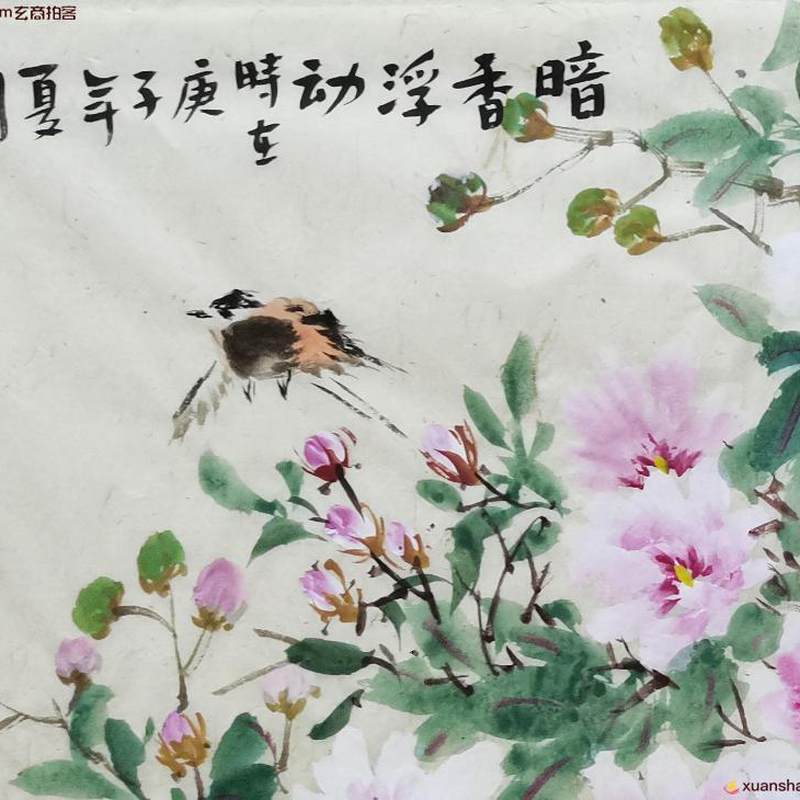 m玄商拍客
暗香浮动時在庚子年夏
xuansha